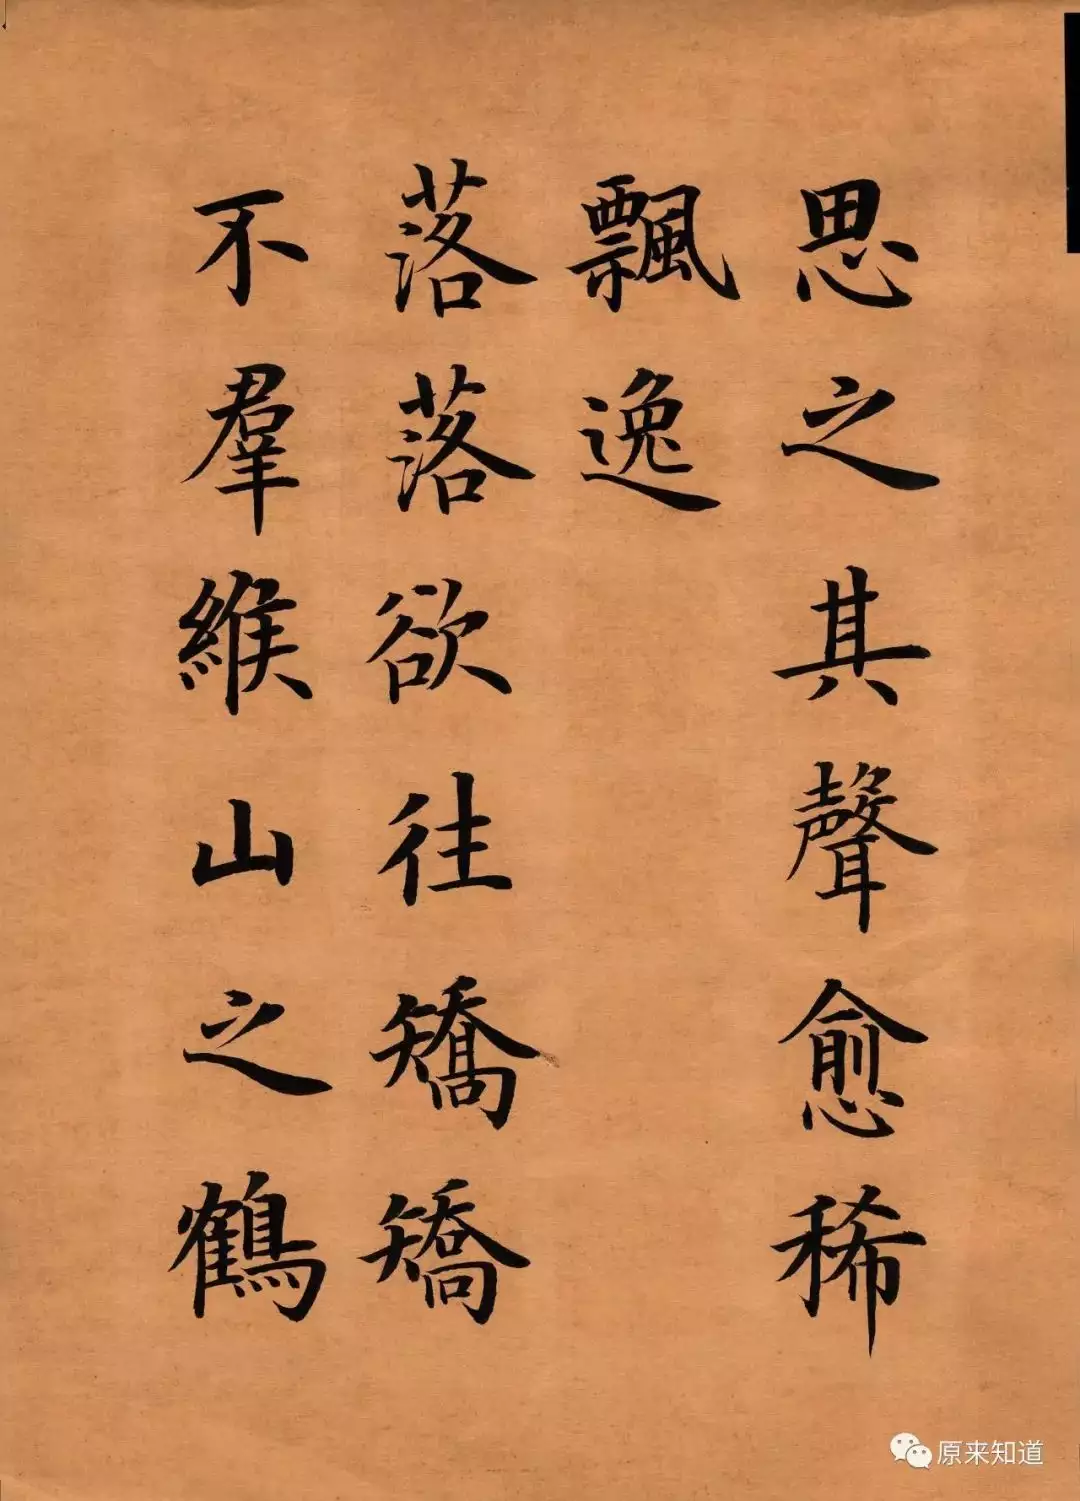 思之其聲愈稀
飄逸
落落欲往矯矯
不羣緱山之鶴
原来知道